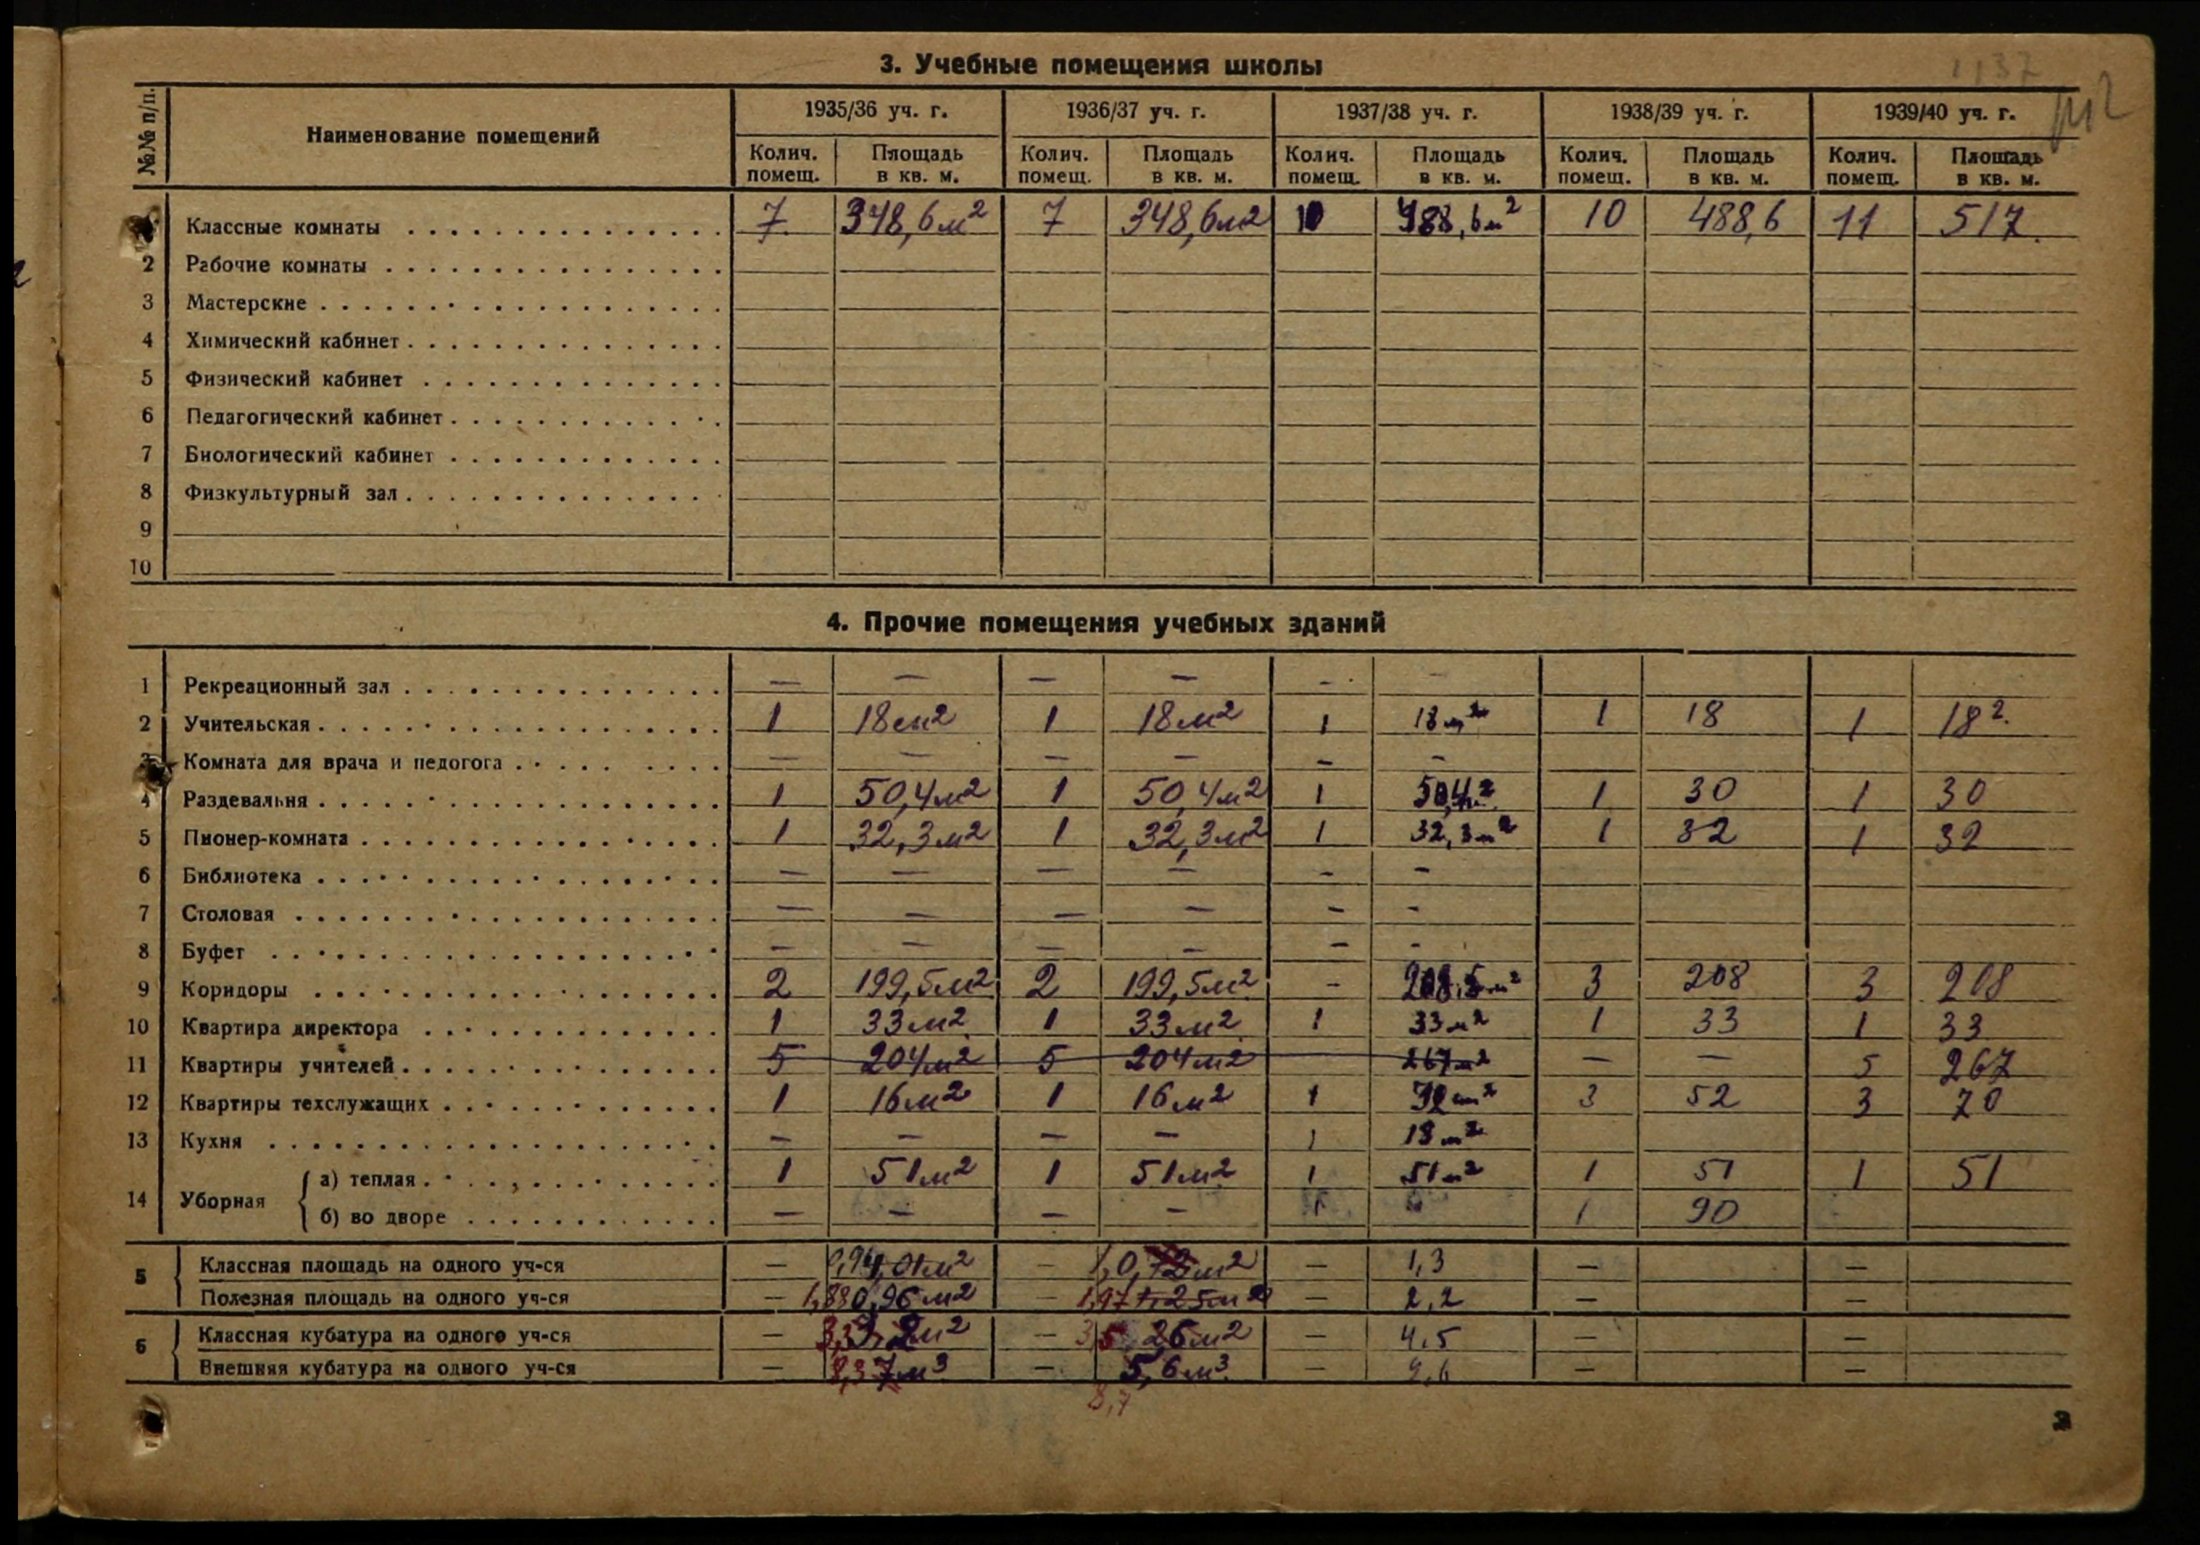 3. Учебные помещения школы
1137
№№ п/п. Наименование помещений 1935/36 уч. г. 1936/37 уч. г. 1937/38 уч. г. 1938/39 уч. г. 1939/40 уч. г.
Колич. помещ. Площадь в кв. м. Колич. помещ. Площадь в кв. м. Колич. помещ. Площадь в кв. м. Колич. помещ. Площадь в кв. м. Колич. помещ. Площадь в кв. м.
Классные комнаты 7 348,6 м2 7 348,6 м2 10 488,6 м2 10 488,6 11 517.
2 Рабочие комнаты
3 Мастерские
4 Химический кабинет
5 Физический кабинет
6 Педагогический кабинет
7 Биологический кабинет
8 Физкультурный зал
9
10
4. Прочие помещения учебных зданий
1 Рекреационный зал — — — — - -
2 Учительская 1 18 м2 1 18 м2 1 18 м2 1 18 1 18 2.
Комната для врача и педогога — — — — - -
4 Раздевальня 1 50,4 м2 1 50,4 м2 1 50,4 м2 1 30 1 30
5 Пионер-комната 1 32,3 м2 1 32,3 м2 1 32,3 м2 1 32 1 32
6 Библиотека — — — — - -
7 Столовая — — — — - -
8 Буфет — — — — - -
9 Коридоры 2 199,5 м2 2 199,5 м2 - 208,5 м2 3 208 3 208
10 Квартира директора 1 33 м2 1 33 м2 1 33 м2 1 33 1 33
11 Квартиры учителей 5 204 м2 5 204 м2 267 м2 — — 5 267
12 Квартиры техслужащих 1 16 м2 1 16 м2 1 м2 3 52 3 70
13 Кухня — — — — 1 18 м2
14 Уборная а) теплая 1 51 м2 1 51 м2 1 51 м2 1 51 1 51
б) во дворе — — — — 1 1 90
5 Классная площадь на одного уч-ся — — — 1,3 — —
Полезная площадь на одного уч-ся — 1,88 0,96 м2 — 1,97 1,25 м2 — 2,2 — —
6 Классная кубатура на одного уч-ся — — — 4,5 — —
Внешняя кубатура на одного уч-ся — 8,3 7 м3 — 5,6 м3 — 9,6 — —
8,7
3